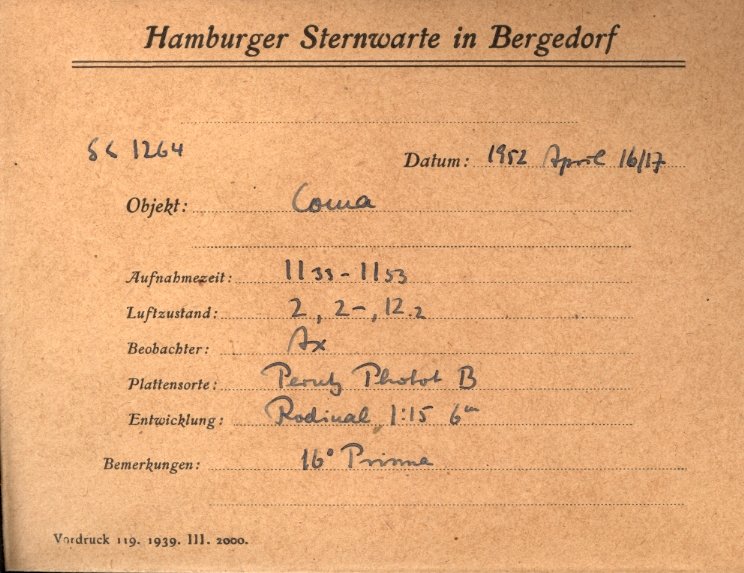 Hamburger Sternwarte in Bergedorf
SS 1264
Datum: 1952 April 16/17
Objekt: Coma
Aufnahmezeit: 11 33 - 11 53
Luftzustand: 2, 2-, 12.2
Beobachter: Ax
Plattensorte: Perutz Phot B
Entwicklung: Rodinal 1:15 6m
Bemerkungen: 16° Prisma
Vordruck 119. 1939. III. 2000.